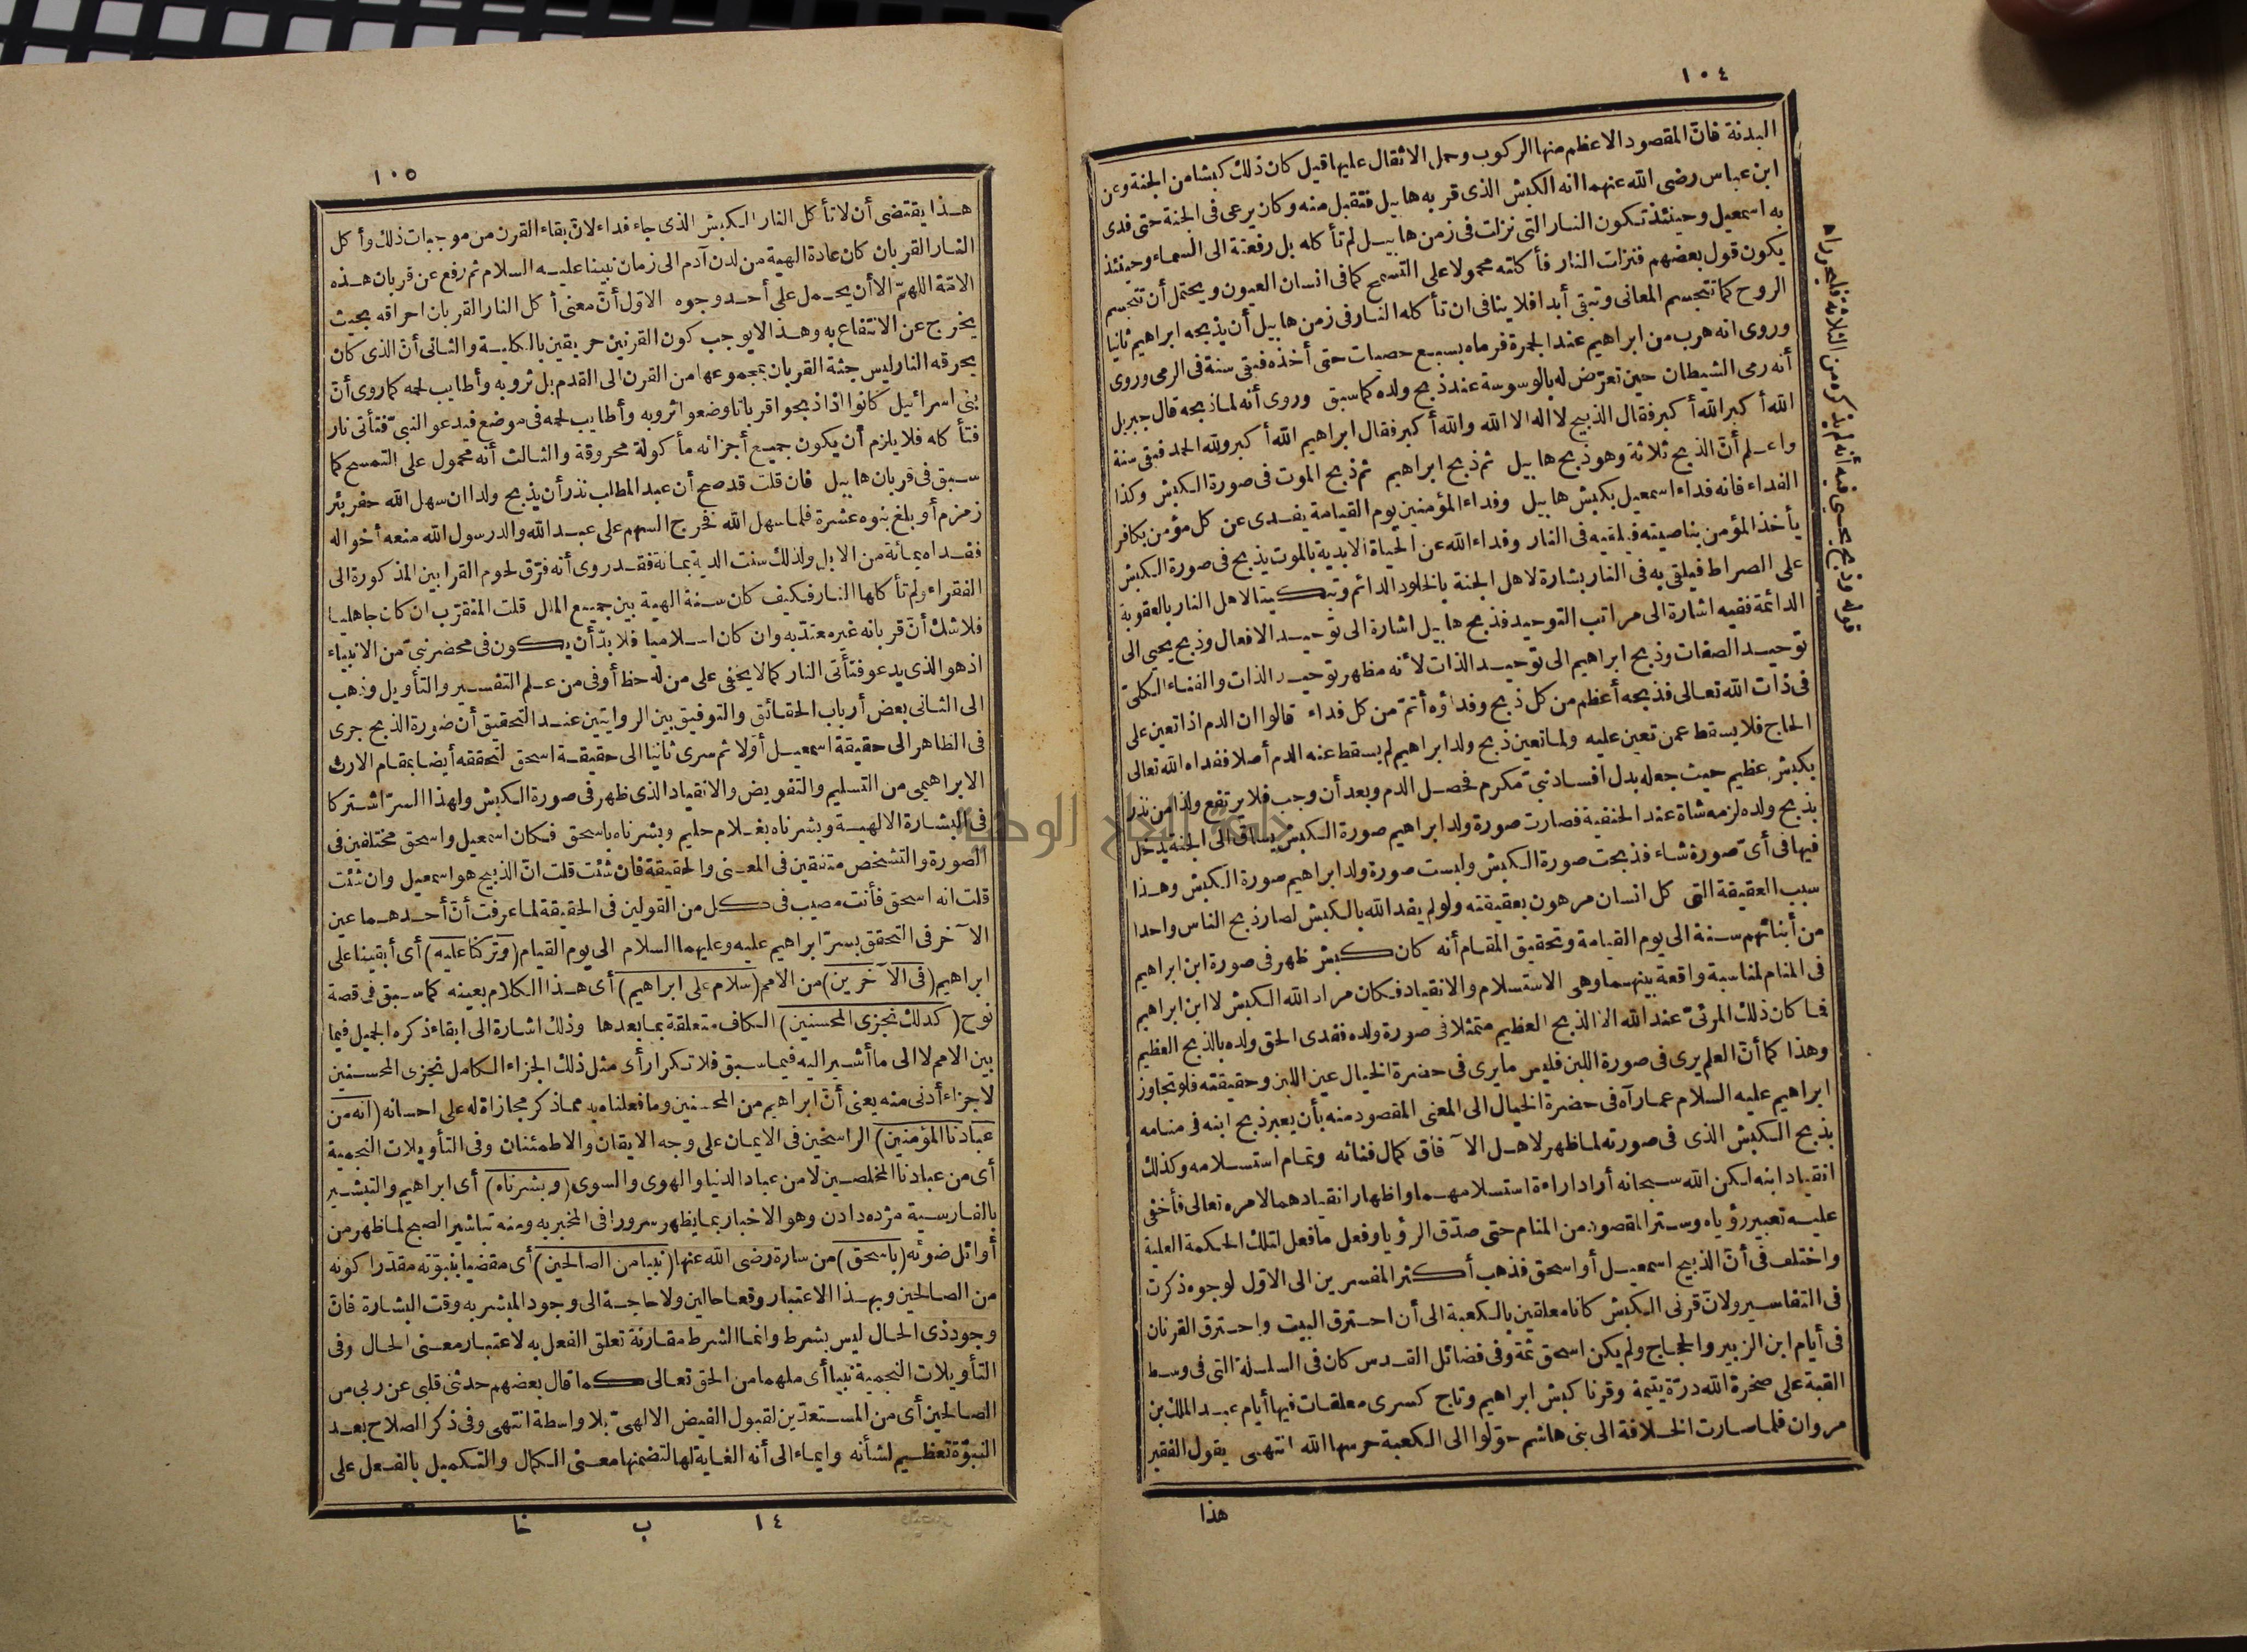 ١٠٤
البدنة فانّ المقصود الاعظم منها الركوب وحمل الاثقال عليها قيل كان ذلك كبشا من الجنة وعن
ابن عباس رضى الله عنهما انه الكبش الذى قربه هابيل فتقبل منه وكان يرعى فى الجنة حتى فدى
به اسمعيل وحينئذ تكون النار التى نزلت فى زمن هابيل لم تأكله بل رفعته الى السماء وحينئذ
يكون قول بعضهم فنزلت النار فأكلته محمولا على التسمح كما فى انسان العيون ويحتمل أن تتجسم
الروح كما تتجسم المعانى وتبقى أبدا فلا ينافى ان تأكله النار فى زمن هابيل أن يذبحه ابراهيم ثانيا
وروى انه هرب من ابراهيم عند الجمرة فرماه بسبع حصيات حتى أخذه فبقى سنة فى الرمى وروى
أنه رمى الشيطان حين تعرّض له بالوسوسة عند ذبح ولده كما سبق وروى أنه لما ذبحه قال جبريل
الله أكبر الله أكبر فقال الذبيح لا اله الا الله والله أكبر فقال ابراهيم الله أكبر ولله الحمد فبقى سنة
واعلم أنّ الذبح ثلاثة وهو ذبح هابيل ثم ذبح ابراهيم ثم ذبح الموت فى صورة الكبش وكذا
الفداء فانه فداء اسمعيل بكبش هابيل وفداء المؤمنين يوم القيامة يفدى عن كل مؤمن بكافر
يأخذ المؤمن بناصيته فيلقيه فى النار وفداء الله عن الحياة الابدية بالموت يذبح فى صورة الكبش
على الصراط فيلقى به فى النار بشارة لاهل الجنة بالخلود الدائم وتبكيتا لاهل النار بالعقوبة
الدائمة ففيه اشارة الى مراتب التوحيد فذبح هابيل اشارة الى توحيد الافعال وذبح يحيى الى
توحيد الصفات وذبح ابراهيم الى توحيد الذات لانه مظهر توحيد الذات والفناء الكلىّ
فى ذات الله تعالى فذبحه أعظم من كل ذبح وفداؤه أتمّ من كل فداء قالوا ان الدم اذا تعين على
الحاج فلا يسقط عمن تعين عليه ولما تعين ذبح ولد ابراهيم لم يسقط عنه الدم أصلا ففداه الله تعالى
بكبش عظيم حيث جعله بدل افساد نبىّ مكرم فحصل الدم وبعد أن وجب فلا يرتفع ولذا من نذر
بذبح ولده لزمه شاة عند الحنفية فصارت صورة ولد ابراهيم صورة الكبش يساق الى الجنة يدخل
فيها فى أىّ صورة شاء فذبحت صورة الكبش ولبست صورة ولد ابراهيم صورة الكبش وهذا
سبب العقيقة التى كل انسان مرهون بعقيقته ولو لم يفد الله بالكبش لصار ذبح الناس واحدا
من أبنائهم سنة الى يوم القيامة وتحقيق المقام أنه كان كبش ظهر فى صورة ابن ابراهيم
فى المنام لمناسبة واقعة بينهما وهى الاستسلام والانقياد فكان مراد الله الكبش لا ابن ابراهيم
فما كان ذلك المرئىّ عند الله الا الذبح العظيم متمثلا فى صورة ولده ففدى الحق ولده بالذبح العظيم
وهذا كما أنّ العلم يرى فى صورة اللبن فليس ما يرى فى حضرة الخيال عين اللبن وحقيقته فلو تجاوز
ابراهيم عليه السلام عما رآه فى حضرة الخيال الى المعنى المقصود منه بأن يعبر ذبح ابنه فى منامه
بذبح الكبش الذى فى صورته لما ظهر لاهل الآفاق كمال فنائه وتمام استسلامه وكذلك
انقياد ابنه لكن الله سبحانه أراد اراءة استسلامهما واظهار انقيادهما لامره تعالى فأخفى
عليه تعبير رؤياه وستر المقصود من المنام حتى صدّق الرؤيا وفعل ما فعل لتلك الحكمة العلية
واختلف فى أنّ الذبيح اسمعيل أو اسحق فذهب أكثر المفسرين الى الاوّل لوجوه ذكرت
فى التفاسير ولانّ قرنى الكبش كانا معلقين بالكعبة الى أن احترق البيت واحترق القرنان
فى أيام ابن الزبير والحجاج ولم يكن اسحق ثمة وفى فضائل القدس كان فى السلسلة التى فى وسط
القبة على صخرة الله درّة يتيمة وقرنا كبش ابراهيم وتاج كسرى معلقات فيها أيام عبد الملك بن
مروان فلما صارت الخلافة الى بنى هاشم حوّلوا الى الكعبة حرسها الله انتهى يقول الفقير
هذا
قوله وذبح يحيى فيه أنه لم يذكره من الثلاثة فليحرر اه
١٠٥
هذا يقتضى أن لا تأكل النار الكبش الذى جاء فداء لانّ بقاء القرن من موجبات ذلك وأكل
النار القربان كان عادة الهية من لدن آدم الى زمان نبينا عليه السلام ثم رفع عن قربان هذه
الامّة اللهمّ الا أن يحمل على أحد وجوه الاوّل أنّ معنى أكل النار القربان احراقه بحيث
يخرج عن الانتفاع به وهذا لا يوجب كون القرنين حريقين بالكلية والثانى أنّ الذى كان
يحرقه النار ليس جثة القربان بمجموعها من القرن الى القدم بل ثروبه وأطايب لحمه كما روى أنّ
بنى اسرائيل كانوا اذا ذبحوا قربانا وضعوا ثروبه وأطايب لحمه فى موضع فيدعو النبىّ فتأتى نار
فتأكله فلا يلزم أن يكون جميع أجزائه مأكولة محروقة والثالث أنه محمول على التمسح كما
سبق فى قربان هابيل فان قلت قد صح أن عبد المطلب نذر أن يذبح ولدا ان سهل الله حفر بئر
زمزم أو بلغ بنوه عشرة فلما سهل الله فخرج السهم على عبد الله والد رسول الله منعه أخواله
ففداه بمائة من الابل ولذلك سنت الدية بمائة فقد روى أنه فرّق لحوم القرابين المذكورة الى
الفقراء ولم تأكلها النار فكيف كان سنة الهية بين جميع الملل قلت المتقرّب ان كان جاهليا
فلا شك أنّ قربانه غير معتدّ به وان كان اسلاميا فلا بدّ أن يكون فى محضر نبىّ من الانبياء
اذ هو الذى يدعو فتأتى النار كما لا يخفى على من له حظ أوفى من علم التفسير والتأويل وذهب
الى الثانى بعض أرباب الحقائق والتوفيق بين الروايتين عند التحقيق أن صورة الذبح جرى
فى الظاهر الى حقيقة اسمعيل أوّلا ثم سرى ثانيا الى حقيقة اسحق لتحققه أيضا بمقام الارث
الابراهيمى من التسليم والتفويض والانقياد الذى ظهر فى صورة الكبش ولهذا السرّ اشتركا
فى البشارة الالهية وبشرناه بغلام حليم وبشرناه باسحق فكان اسمعيل واسحق مختلفين فى
الصورة والتشخص متفقين فى المعنى والحقيقة فان شئت قلت انّ الذبيح هو اسمعيل وان شئت
قلت انه اسحق فأنت مصيب فى كل من القولين فى الحقيقة لما عرفت أنّ أحدهما عين
الآخر فى التحقق بسرّ ابراهيم عليه وعليهما السلام الى يوم القيام (وتركنا عليه) أى أبقينا على
ابراهيم (فى الآخرين) من الامم (سلام على ابراهيم) أى هذا الكلام بعينه كما سبق فى قصة
نوح (كذلك نجزى المحسنين) الكاف متعلقة بما بعدها وذلك اشارة الى ابقاء ذكره الجميل فيما
بين الامم لا الى ما أشير اليه فيما سبق فلا تكرار أى مثل ذلك الجزاء الكامل نجزى المحسنين
لا جزاء أدنى منه يعنى أنّ ابراهيم من المحسنين وما فعلناه به مما ذكر مجازاة له على احسانه (انه من
عبادنا المؤمنين) الراسخين فى الايمان على وجه الايقان والاطمئنان وفى التأويلات النجمية
أى من عبادنا المخلصين لا من عباد الدنيا والهوى والسوى (وبشرناه) أى ابراهيم والتبشير
بالفارسية مژده دادن وهو الاخبار بما يظهر سرورا فى المخبر به ومنه تباشير الصبح لما ظهر من
أوائل ضوئه (باسحق) من سارة رضى الله عنها (نبيا من الصالحين) أى مقضيا بنبوّته مقدّرا كونه
من الصالحين وبهذا الاعتبار وقعا حالين ولا حاجة الى وجود المبشر به وقت البشارة فانّ
وجود ذى الحال ليس بشرط وانما الشرط مقارنة تعلق الفعل به لاعتبار معنى الحال وفى
التأويلات النجمية نبيا أى ملهما من الحق تعالى كما قال بعضهم حدثنى قلبى عن ربى من
الصالحين أى من المستعدّين لقبول الفيض الالهىّ بلا واسطة انتهى وفى ذكر الصلاح بعد
النبوّة تعظيم لشأنه وايماء الى أنه الغاية لها لتضمنها معنى الكمال والتكميل بالفعل على
١٤ ب خا